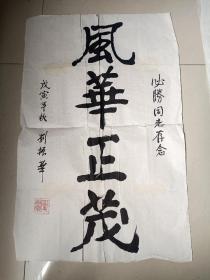 必勝同志存念
風華正茂
戊寅年秋 劉振華